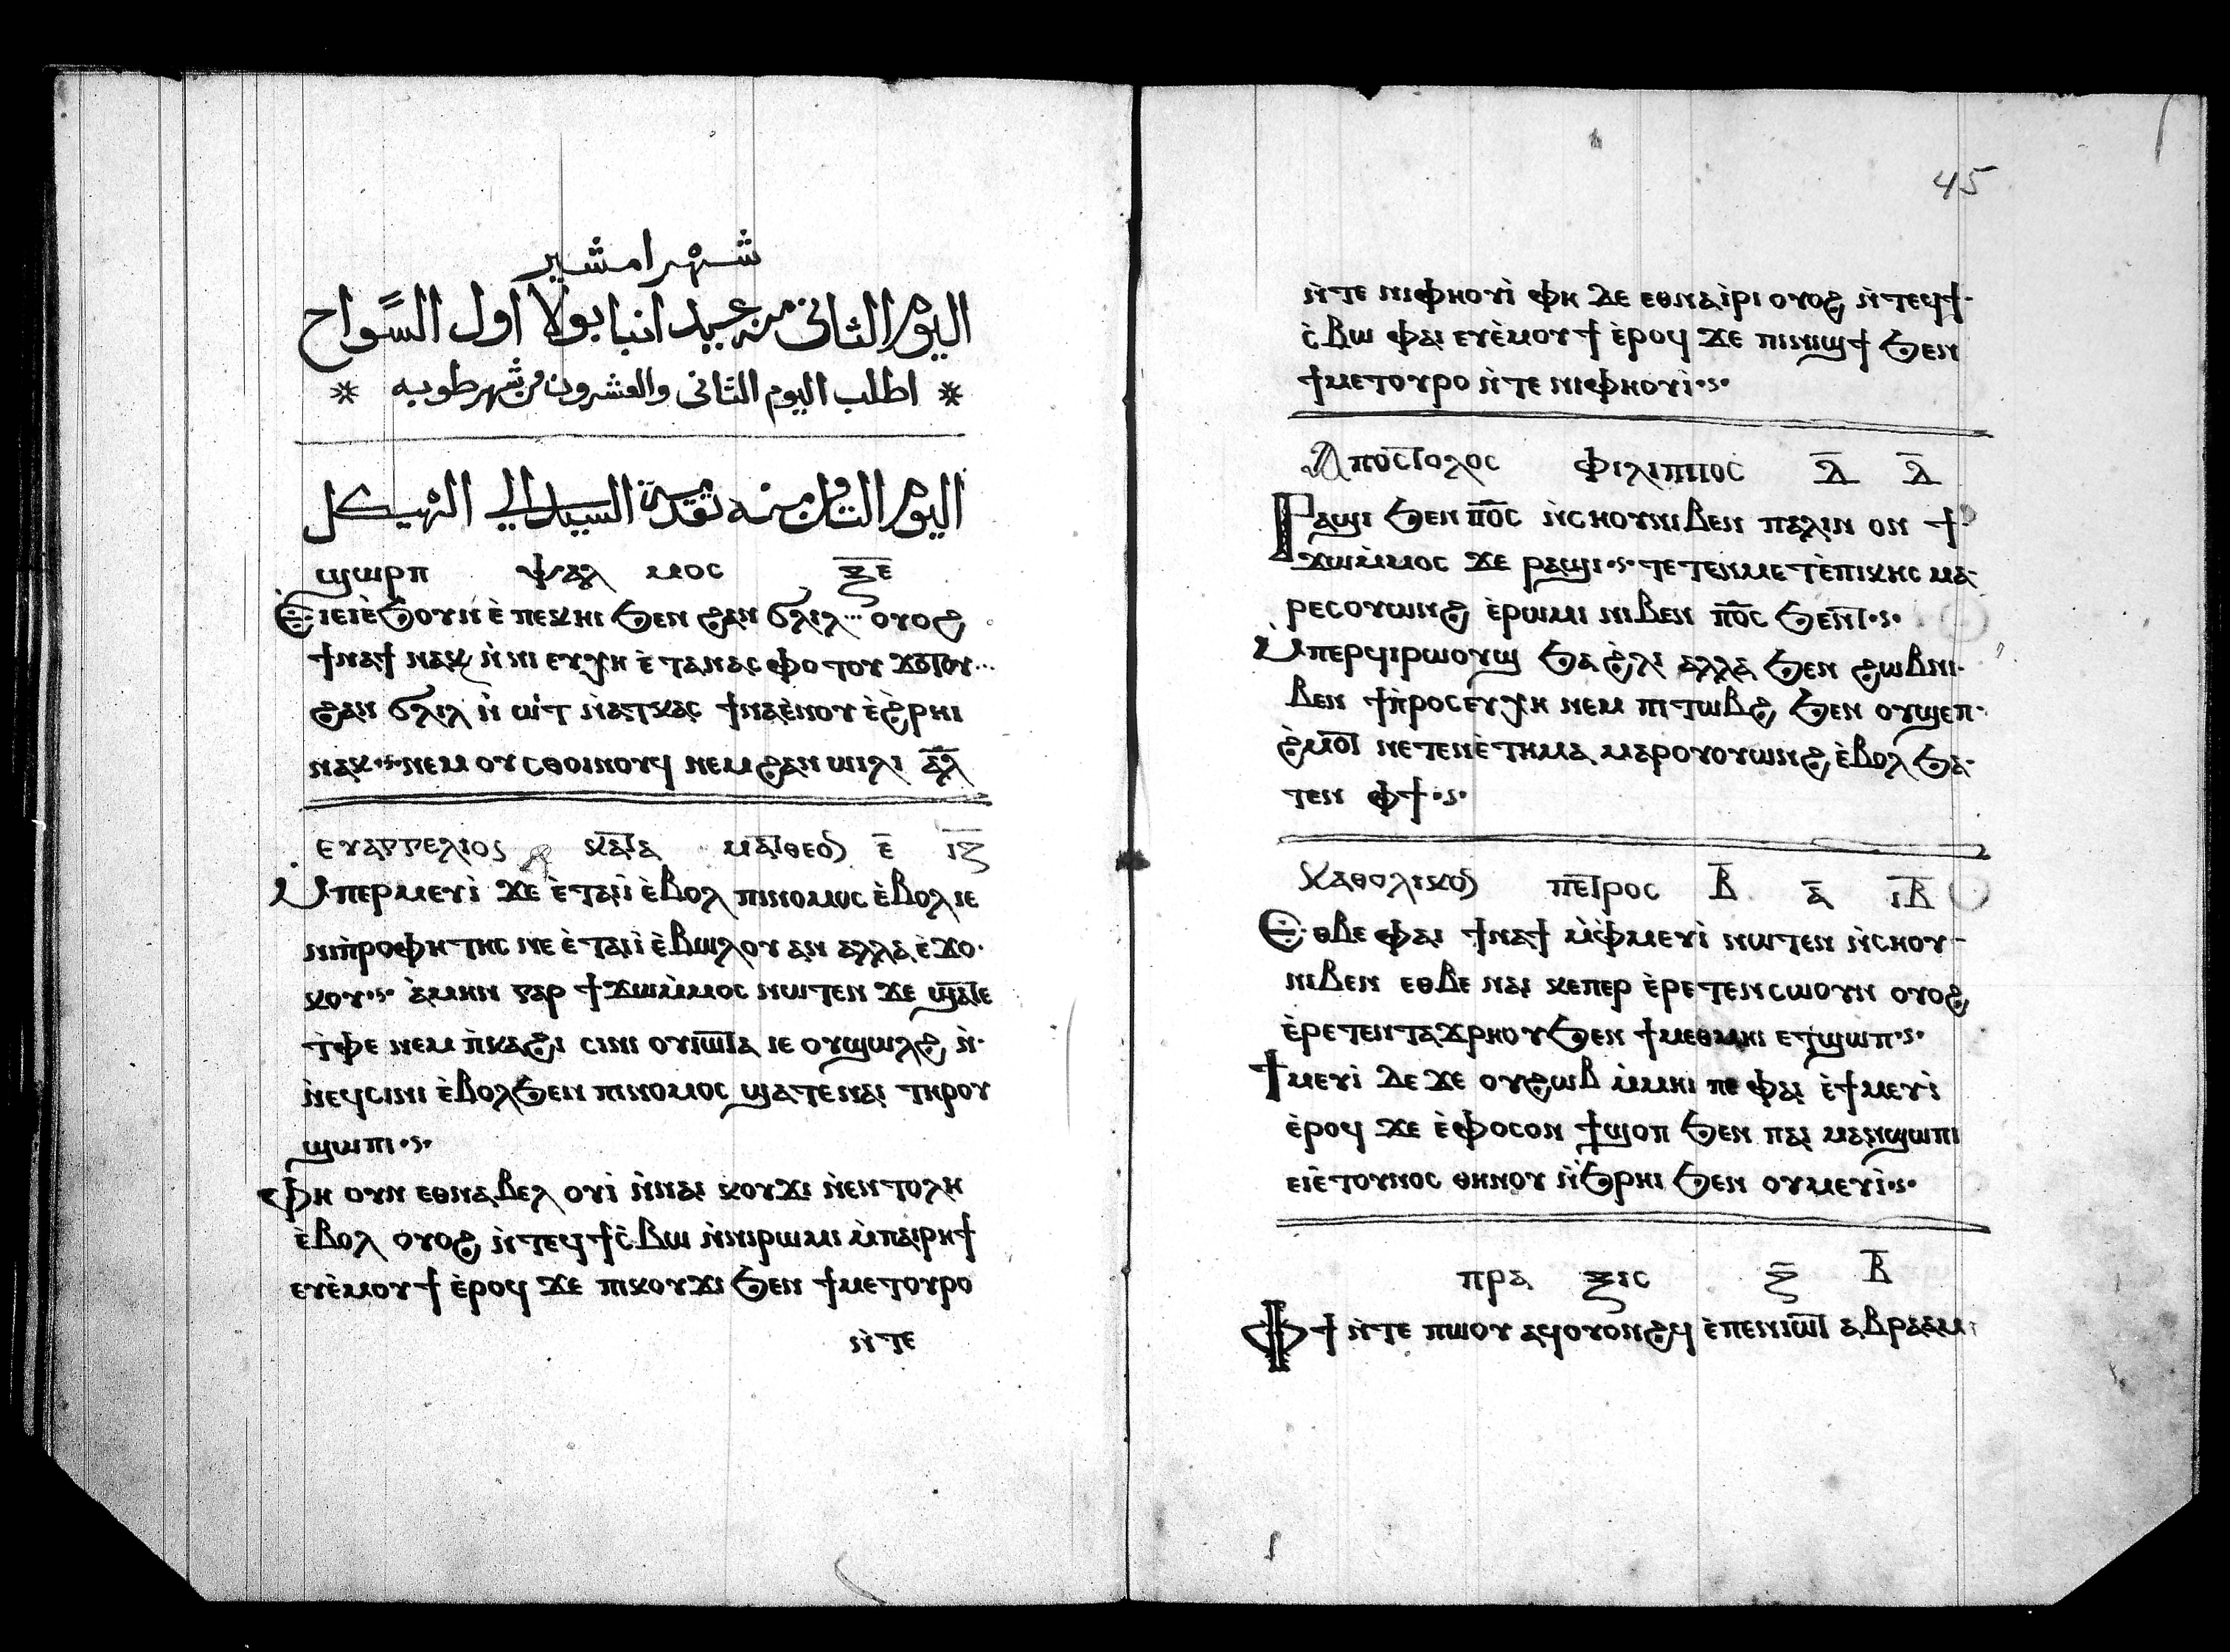 شهر امشير
اليوم الثانى منه عيد انبا بولا اول السواح
* اطلب اليوم الثانى والعشرون من شهر طوبه *
اليوم الثامن منه تقدمة السيد الي الهيكل
ϣⲱⲣⲡ ⲯⲁⲗ ⲙⲟⲥ ⲝ̅ⲉ̅
Ⲉⲓⲉⲓⲉ̀ϧⲟⲩⲛ ⲉ̀ ⲡⲉⲕⲏⲓ ϧⲉⲛ ϩⲁⲛ ϭⲗⲓⲗ... ⲟⲩⲟϩ
ϯⲛⲁϯ ⲛⲁⲕ ⲛ̀ ⲛⲓ ⲉⲩⲭⲏ ⲉ̀ ⲧⲁⲛⲁⲥ ⲫⲟ ⲧⲟⲩ ϫⲟⲧⲟⲩ...
ϩⲁⲛ ϭⲗⲓⲗ ⲛ̀ ⲱⲓⲧ ⲛ̀ⲁⲧⲕⲁⲥ ϯⲛⲁⲉ̀ⲛⲟⲩ ⲉ̀ϩⲣⲏⲓ
ⲛⲁⲕ·ⲥ·ⲛⲉⲙ ⲟⲩ ⲥⲑⲟⲓⲛⲟⲩϥ ⲛⲉⲙ ϩⲁⲛ ⲱⲓⲗⲓ ⲁ̅ⲗ̅
ⲉⲩⲁⲅⲅⲉⲗⲓⲟⲥ ⲕⲁⲧⲁ ⲙⲁⲧⲑⲉⲟⲥ ⲉ̅ ⲓ̅ⲍ̅
Ⲙ̀ⲡⲉⲣⲙⲉⲩⲓ̀ ϫⲉ ⲉ̀ⲧⲁⲓⲓ̀ ⲉ̀ⲃⲟⲗ ⲡⲓⲛⲟⲙⲟⲥ ⲉ̀ⲃⲟⲗ ⲓⲉ
ⲛⲓⲡ̀ⲣⲟⲫⲏ ⲧⲏⲥ ⲛⲉ ⲉ̀ⲧⲁⲓⲓ̀ ⲉ̀ⲃⲱⲗⲟⲩ ⲁⲛ ⲁⲗⲗⲁ ⲉ̀ ϫⲟ·
ⲕⲟⲩ·ⲥ· ⲁ̀ⲙⲏⲛ ⲅⲁⲣ ϯϫⲱⲙ̀ⲙⲟⲥ ⲛⲱⲧⲉⲛ ϫⲉ ϣⲁⲧⲉ
ⲧ̀ⲫⲉ ⲛⲉⲙ ⲡ̀ⲕⲁϩⲓ ⲥⲓⲛⲓ ⲟⲩⲓⲱⲧⲁ ⲓⲉ ⲟⲩϣⲱⲗϩ ⲛ̀·
ⲛ̀ⲉϥⲥⲓⲛⲓ ⲉ̀ⲃⲟⲗϧⲉⲛ ⲡⲓⲛⲟⲙⲟⲥ ϣⲁⲧⲉ ⲛⲁⲓ ⲧⲏⲣⲟⲩ
ϣⲱⲡⲓ·ⲥ·
Ⲫⲏ ⲟⲩⲛ ⲉⲑⲛⲁⲃⲉⲗ ⲟⲩⲓ̀ ⲛ̀ⲛⲁⲓ ⲕⲟⲩϫⲓ ⲛ̀ⲉⲛⲧⲟⲗⲏ
ⲉ̀ⲃⲟⲗ ⲟⲩⲟϩ ⲛ̀ⲧⲉϥ ϯⲥ̀ⲃⲱ ⲛ̀ⲛⲓⲣⲱⲙⲓ ⲙ̀ⲡⲁⲓⲣⲏϯ
ⲉⲩⲉ̀ⲙⲟⲩϯ ⲉ̀ⲣⲟϥ ϫⲉ ⲡⲓⲕⲟⲩϫⲓ ϧⲉⲛ ϯⲙⲉⲧⲟⲩⲣⲟ
ⲛ̀ⲧⲉ
45
ⲛ̀ⲧⲉ ⲛⲓⲫⲏⲟⲩⲓ̀ ⲫⲏ ⲇⲉ ⲉⲑⲛⲁⲓ̀ⲣⲓ ⲟⲩⲟϩ ⲛ̀ⲧⲉϥϯ·
ⲥ̀ⲃⲱ ⲫⲁⲓ ⲉⲩⲉ̀ⲙⲟⲩϯ ⲉ̀ⲣⲟϥ ϫⲉ ⲡⲓⲛⲓϣϯ ϧⲉⲛ
ϯⲙⲉⲧⲟⲩⲣⲟ ⲛ̀ⲧⲉ ⲛⲓⲫⲏⲟⲩⲓ̀·ⲥ·
Ⲁⲡⲟⲥⲧⲟⲗⲟⲥ ⲫⲓⲗⲓⲡⲡⲟⲥ ⲇ̅ ⲇ̅
Ⲣⲁϣⲓ ϧⲉⲛ ⲡ̅ⲟ̅ⲥ̅ ⲛ̀ⲥⲏⲟⲩⲛⲓⲃⲉⲛ ⲡⲁⲗⲓⲛ ⲟⲛ ϯ·
ϫⲱⲙ̀ⲙⲟⲥ ϫⲉ ⲣⲁϣⲓ·ⲥ· ⲧⲉ ⲧⲉⲛⲙⲉⲧⲉ̀ⲡⲓⲕⲏⲥ ⲙⲁ·
ⲣⲉⲥⲟⲩⲱⲛϩ ⲉ̀ⲣⲱⲙⲓ ⲛⲓⲃⲉⲛ ⲡ̅ⲟ̅ⲥ̅ ϧⲉⲛⲧ·ⲥ·
Ⲙ̀ⲡⲉⲣϥⲓⲣⲱⲟⲩϣ ϧⲁ ϩ̀ⲗⲓ ⲁⲗⲗⲁ ϧⲉⲛ ϩⲱⲃⲛⲓ·
ⲃⲉⲛ ϯⲡ̀ⲣⲟⲥⲉⲩⲭⲏ ⲛⲉⲙ ⲡⲓ ⲧⲱⲃϩ ϧⲉⲛ ⲟⲩϣⲉⲡ·
ϩ̀ⲙⲟⲧ ⲛⲉⲧⲉⲛⲉ̀ⲧⲏⲙⲁ ⲙⲁⲣⲟⲩⲟⲩⲱⲛϩ ⲉ̀ⲃⲟⲗ ϧⲁ·
ⲧⲉⲛ ⲫϯ·ⲥ·
Ⲕⲁⲑⲟⲗⲓⲕⲟⲛ ⲡⲉⲧⲣⲟⲥ ⲃ̅ ⲁ̅ ⲓ̅ⲃ̅
Ⲉⲑⲃⲉ ⲫⲁⲓ ϯⲛⲁϯ ⲙ̀ⲫ̀ⲙⲉⲩⲓ̀ ⲛⲱⲧⲉⲛ ⲛ̀ⲥⲏⲟⲩ-
ⲛⲓⲃⲉⲛ ⲉⲑⲃⲉ ⲛⲁⲓ ⲕⲉⲡⲉⲣ ⲉ̀ⲣⲉⲧⲉⲛⲥⲱⲟⲩⲛ ⲟⲩⲟϩ
ⲉ̀ⲣⲉⲧⲉⲛⲧⲁϫⲣⲏⲟⲩ ϧⲉⲛ ϯⲙⲉⲑⲙⲏⲓ ⲉⲧϣⲱⲡ·ⲥ·
Ϯⲙⲉⲩⲓ̀ ⲇⲉ ϫⲉ ⲟⲩϩⲱⲃ ⲙ̀ⲙⲏⲓ ⲡⲉ ⲫⲁⲓ ⲉ̀ϯⲙⲉⲩⲓ̀
ⲉ̀ⲣⲟϥ ϫⲉ ⲉ̀ⲫⲟⲥⲟⲛ ϯϣⲟⲡ ϧⲉⲛ ⲡⲁⲓ ⲙⲁⲛϣⲱⲡⲓ
ⲉⲓⲉ̀ⲧⲟⲩⲛⲟⲥ ⲑⲏⲛⲟⲩ ⲛ̀ϧ̀ⲣⲏⲓ ϧⲉⲛ ⲟⲩⲙⲉⲩⲓ̀·ⲥ·
ⲡⲣⲁ ⲝⲓⲥ ⲍ̅ ⲃ̅
Ⲫϯ ⲛ̀ⲧⲉ ⲡⲱⲟⲩ ⲁϥⲟⲩⲟⲛϩϥ ⲉ̀ⲡⲉⲛⲓⲱⲧ ⲁⲃⲣⲁⲁⲙ